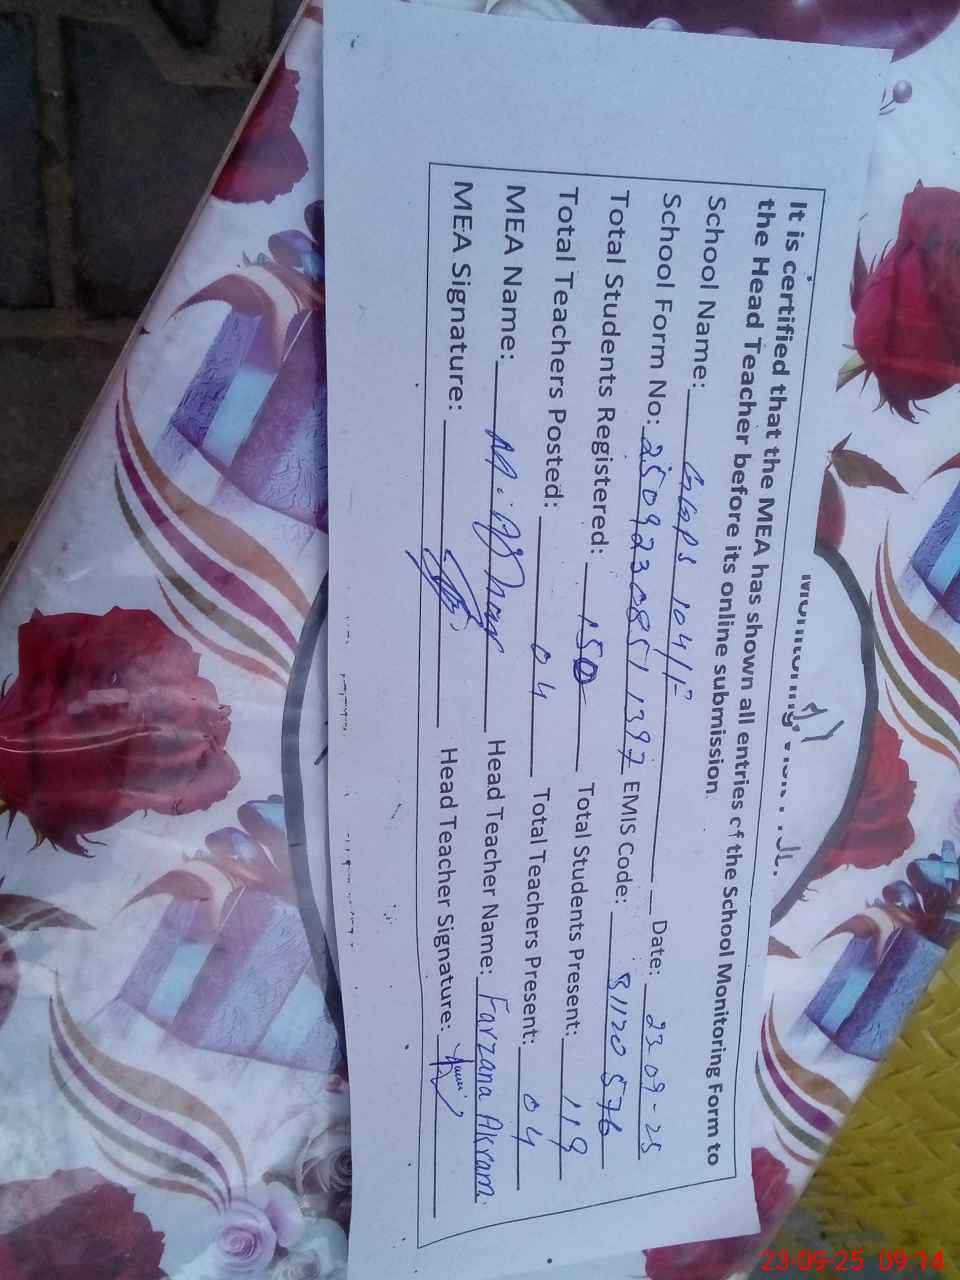 It is certified that the MEA has shown all entries of the School Monitoring Form to
the Head Teacher before its online submission.
School Name: GGPS 104/F Date: 23-09-25
School Form No: 250923085 1397 EMIS Code: 31120576
Total Students Registered: 150 Total Students Present: 119
Total Teachers Posted: 04 Total Teachers Present: 04
MEA Name: M. Head Teacher Name: Farzana Akram
MEA Signature: Head Teacher Signature:
23-09-25 09:14